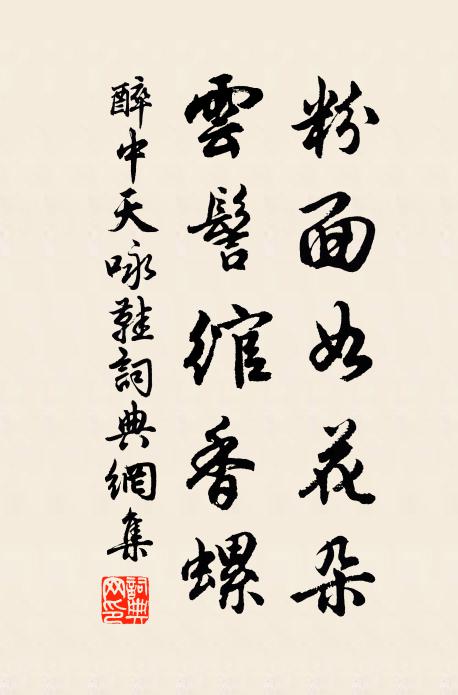 粉面如花朵
雲髻綰香螺
醉中天咏鞋詞典網集
詞典網印